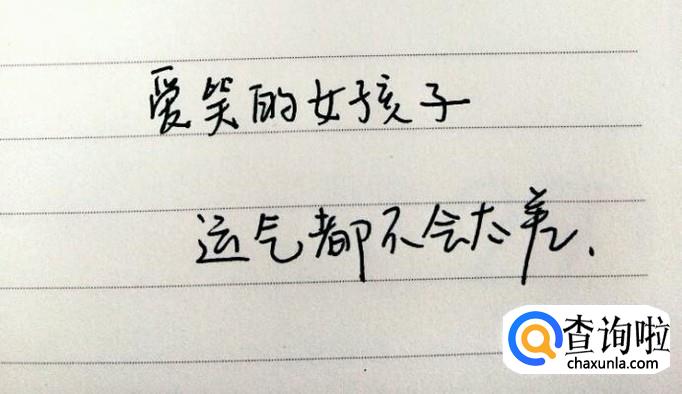 爱笑的女孩子
运气都不会太差.
查询啦
chaxunla.com